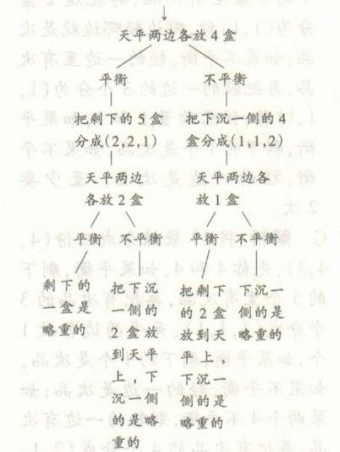 天平两边各放4盒
平衡 不平衡
把剩下的5盒 把下沉一侧的4
分成(2,2,1) 盒分成(1,1,2)
天平两边 天平两边各
各放2盒 放1盒
平衡 不平衡 平衡 不平衡
剩下的
一盒是
略重的
把下沉
一侧的
2盒放
到天平
上,下
沉一侧
的是略
重的
把剩下
的2盒
放到天
平上,
下沉一
侧的是
略重的
下沉一
侧的是
略重的